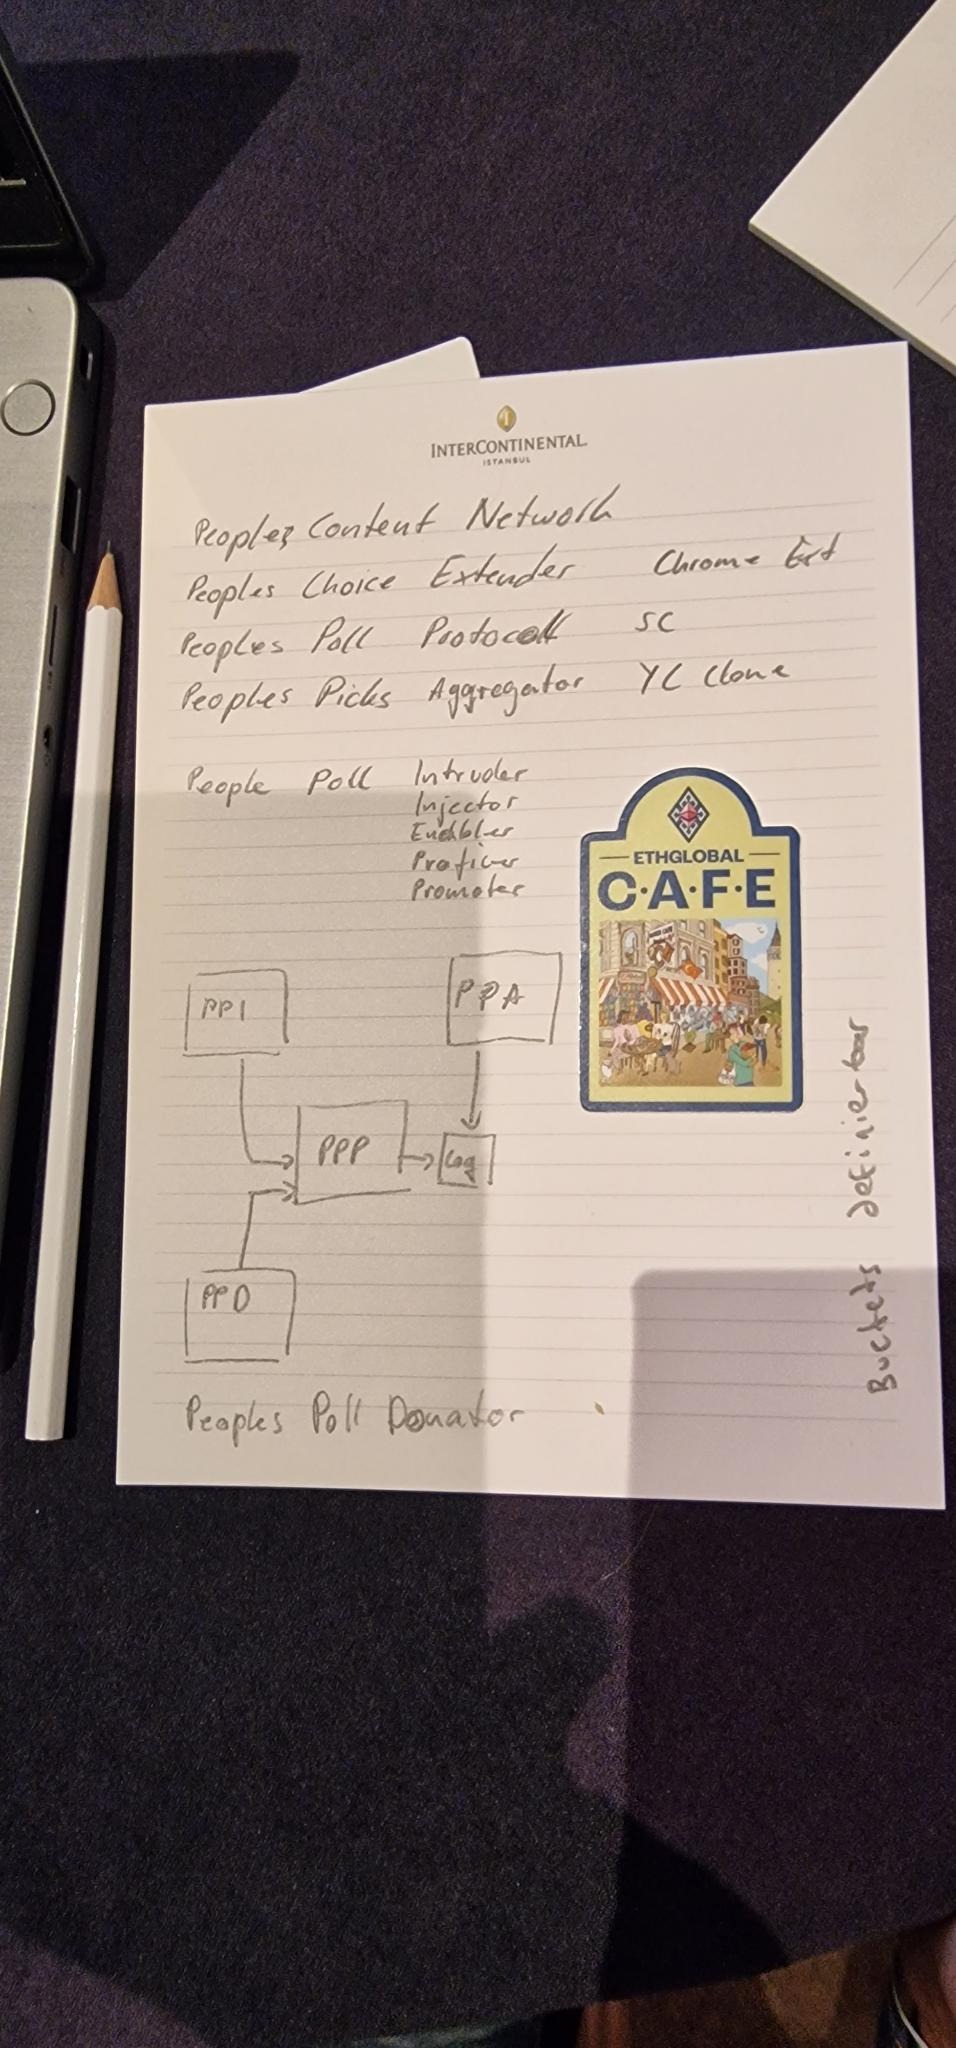 INTERCONTINENTAL
ISTANBUL
Peoples Content Network
Peoples Choice Extender Chrome Ext
Peoples Poll Protocoll SC
Peoples Picks Aggregator YC Clone
People Poll Intruder
Injector
Enabler
Proficer
Promoter
ETHGLOBAL
C·A·F·E
PPI
PPA
PPP
Log
PPD
Peoples Poll Donator
Buckets definierbar